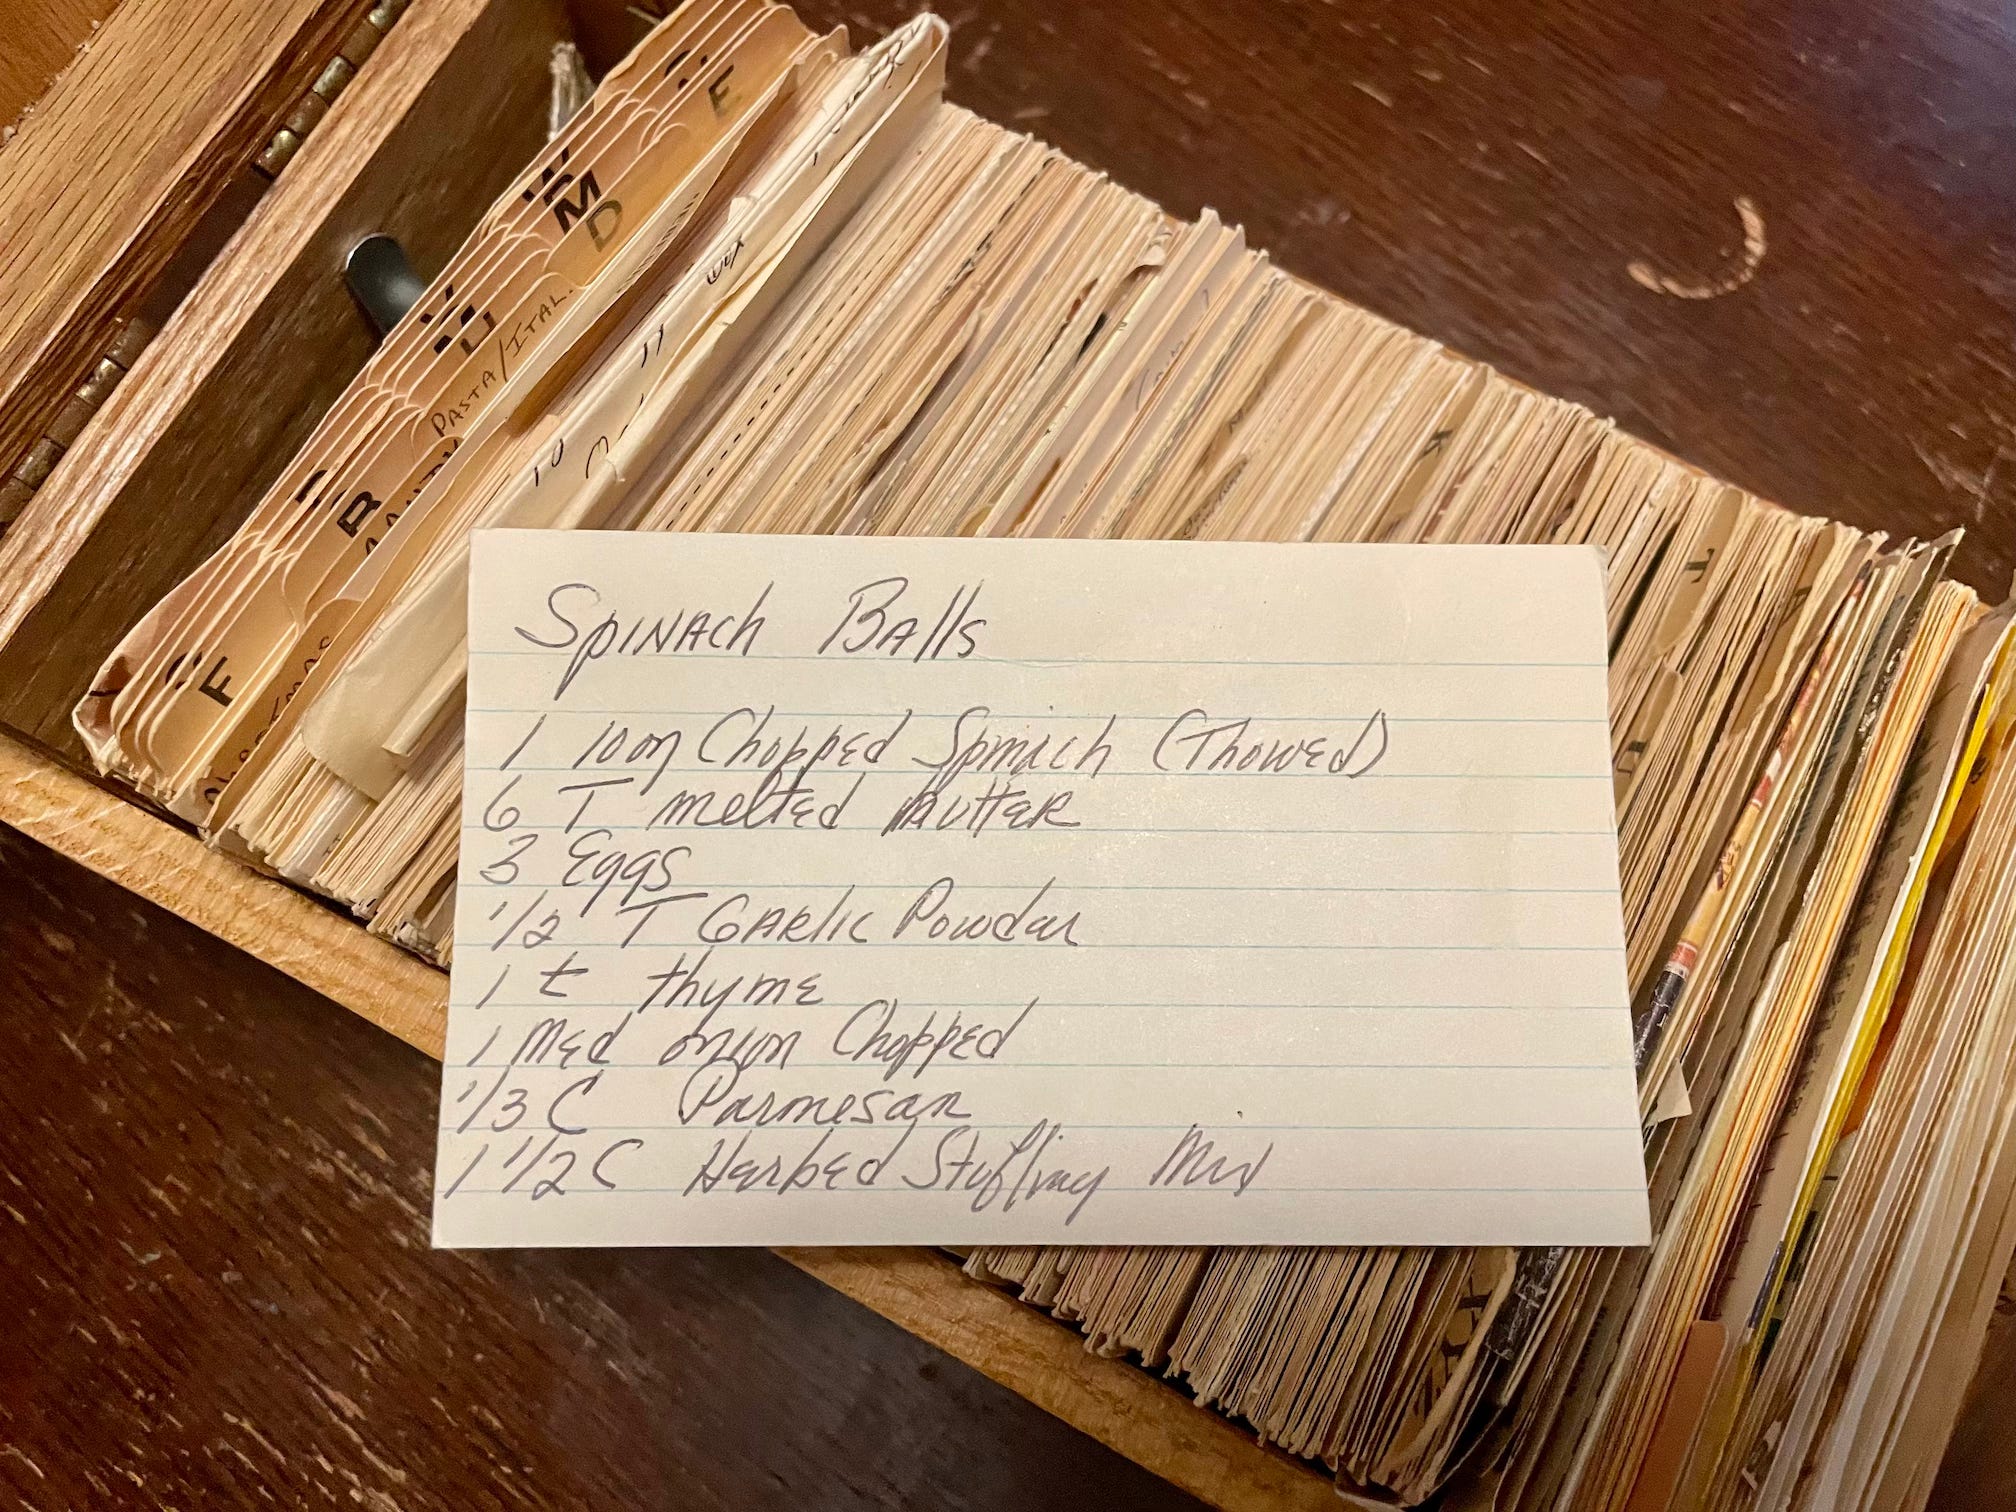 F
M
D
PASTA/ITAL.
R
F
K
T
Spinach Balls
1 10oz Chopped Spinach (Thowed)
6 T melted butter
3 Eggs
1/2 T Garlic Powder
1 t thyme
1 med onion Chopped
1/3 C Parmesan
1 1/2 C Herbed Stuffing Mix